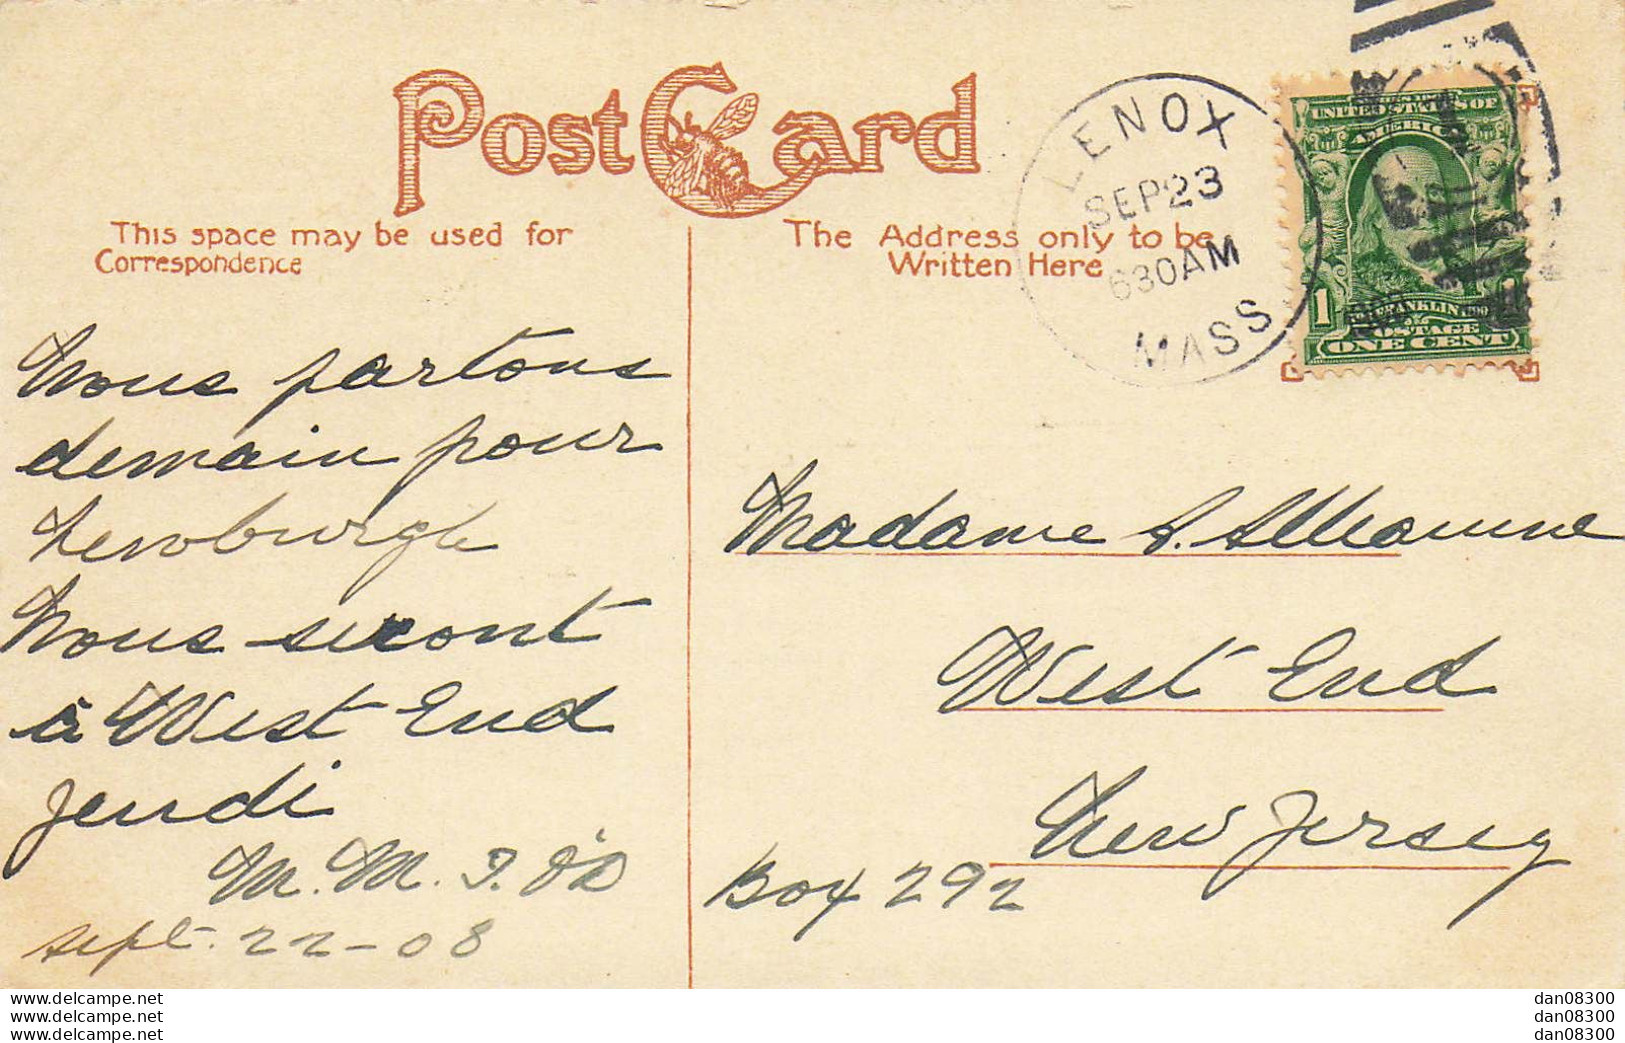 Post Card
This space may be used for
Correspondence
The Address only to be
Written Here
LENOX
SEP 23
630AM
MASS
UNITED STATES OF
AMERICA
1
FRANKLIN
POSTAGE
ONE CENT
Nous partons
demain pour
Newburgh
Nous seront
à West End
jeudi
M. M. J. O'D
Sept. 22-08
Madame
West End
New Jersey
Box 292
www.delcampe.net
www.delcampe.net
www.delcampe.net
dan08300
dan08300
dan08300